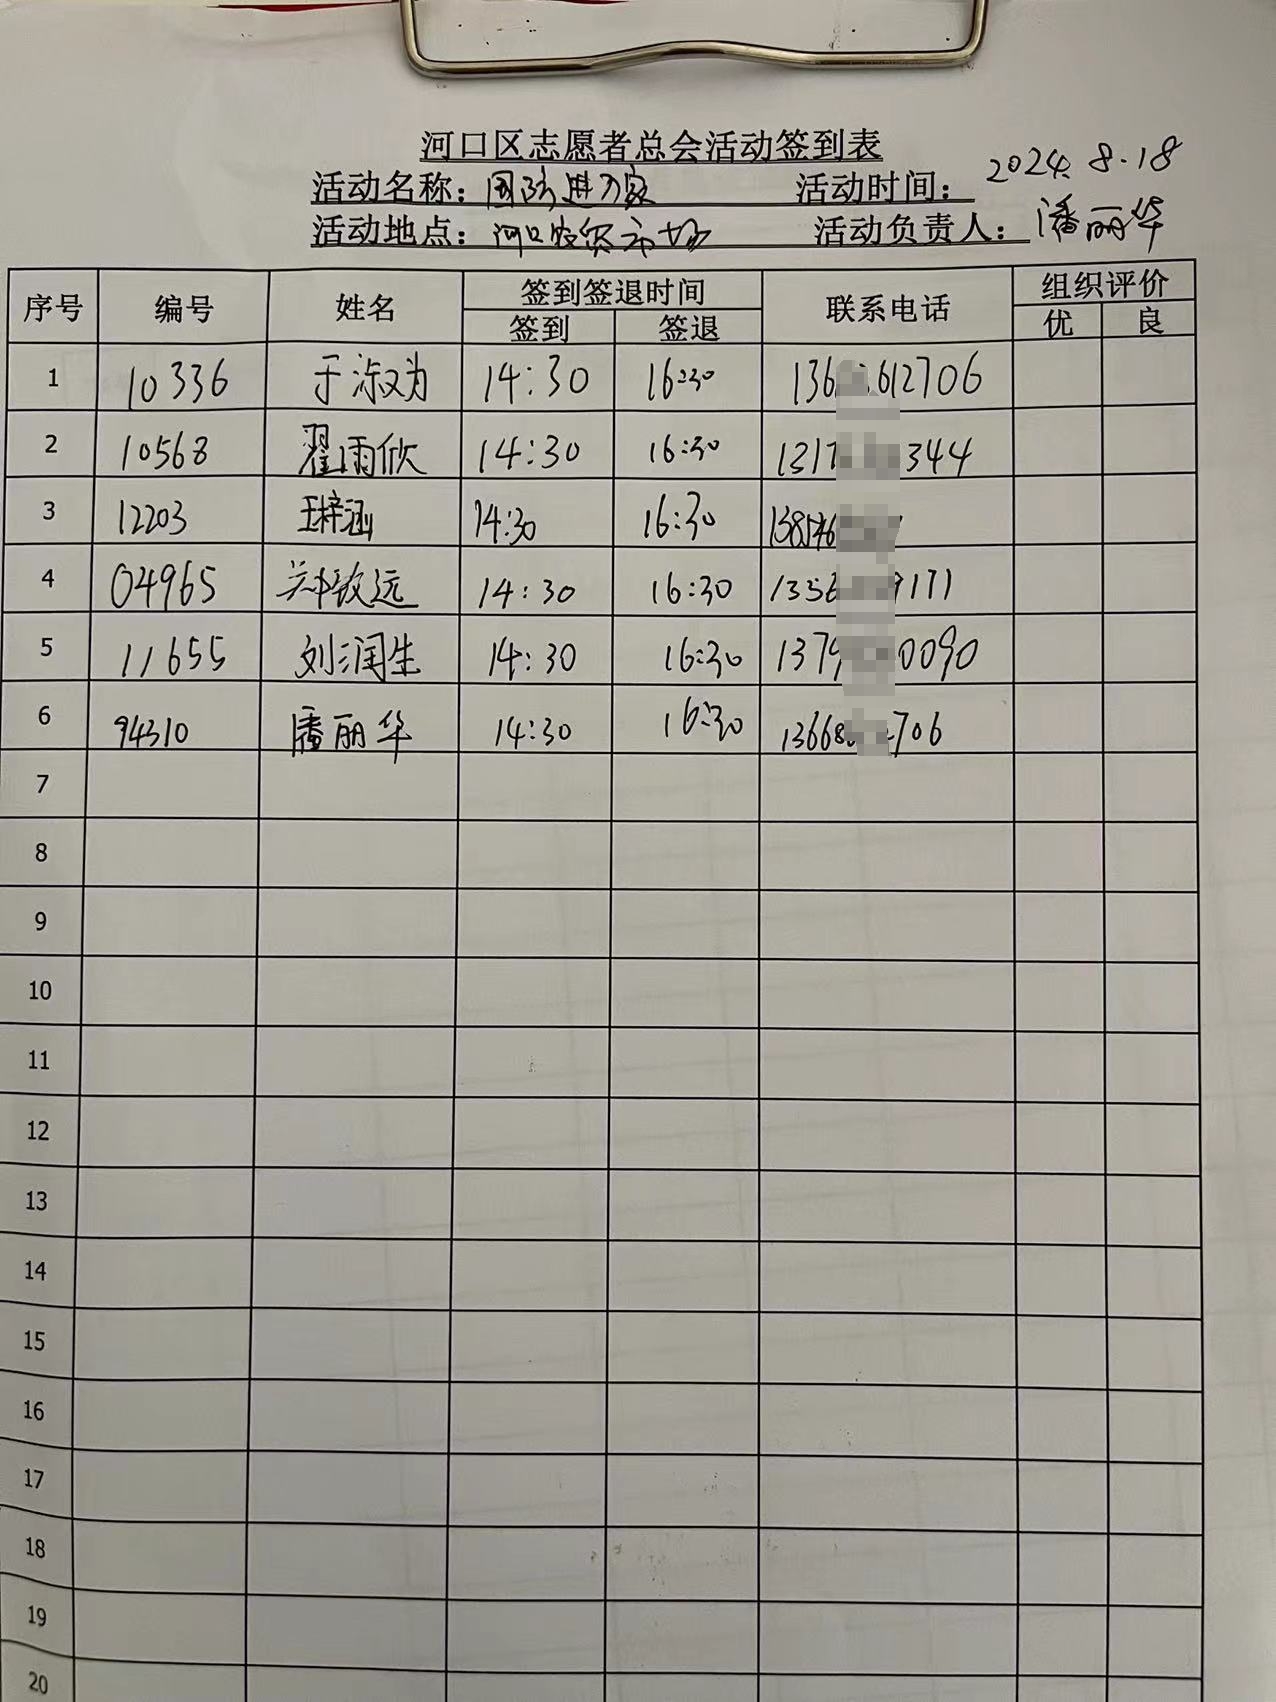 河口区志愿者总会活动签到表
活动名称：国防进万家 活动时间：2024.8.18
活动地点：河口农贸市场 活动负责人：潘丽华
序号 编号 姓名 签到签退时间 联系电话 组织评价
签到 签退 优 良
1 10336 于淑 14:30 16:30 136 612706
2 10568 翟雨欣 14:30 16:30 1317 344
3 12203 王梓涵 14:30 16:30 138546
4 04965 郑致远 14:30 16:30 1356 9171
5 11655 刘润生 14:30 16:30 1379 0090
6 94310 潘丽华 14:30 16:30 13668 2706
7
8
9
10
11
12
13
14
15
16
17
18
19
20